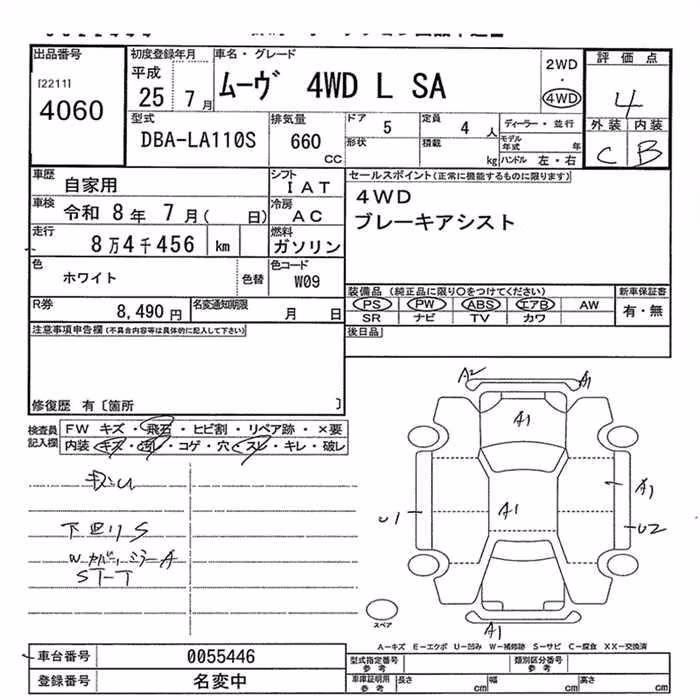 出品番号
[2211]
4060
初度登録年月
平成
25 7月
車名・グレード
ムーヴ 4WD L SA
2WD
・
4WD
評価点
4
外装 内装
C B
型式
DBA-LA110S
排気量
660
CC
ドア
5
定員
4 人
形状
積載
kg
ディーラー・並行
モデル年式 年
ハンドル 左・右
車歴
自家用
シフト
IAT
車検
令和 8年 7月( 日)
冷房
AC
走行
8万4千456 km
燃料
ガソリン
色
ホワイト
色替
色コード
W09
R券
8,490円
名変通知期限
月 日
セールスポイント(正常に機能するものに限ります)
4WD
ブレーキアシスト
装備品(純正品に限り○をつけてください)
PS PW ABS エアB AW
SR ナビ TV カワ
新車保証書
有・無
後日品
注意事項申告欄(不具合内容等は具体的に記入して下さい)
修復歴 有〔箇所 〕
検査員記入欄
FW キズ・飛石・ヒビ割・リペア跡・×要
内装 キズ・汚レ・コゲ・穴・スレ・キレ・破レ
下廻りS
ST-T
A2
A1
A1
A1
A1
U1
U2
A1
スペア
A-キズ E-エクボ U-凹み W-補修跡 S-サビ C-腐食 XX-交換済
車台番号
0055446
登録番号
名変中
型式指定番号
参考
類別区分番号
参考
車庫証明用
参考
長さ cm
幅 cm
高さ cm